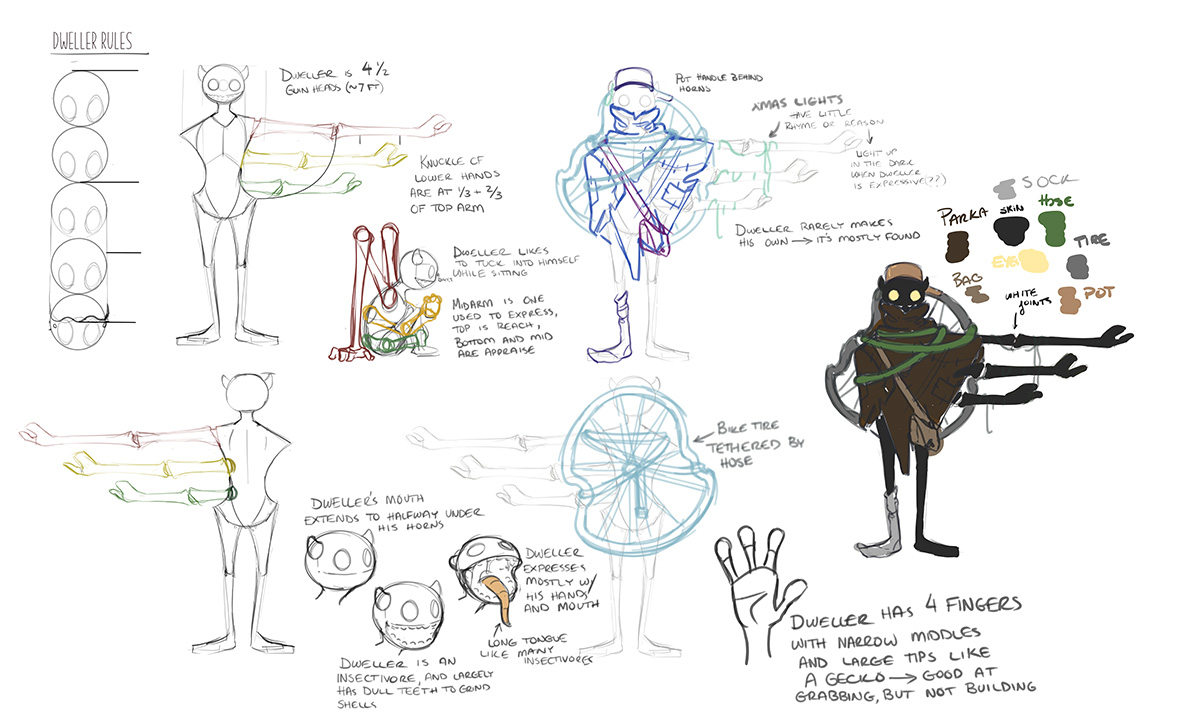 DWELLER RULES
DWELLER IS 4 1/2
GUIN HEADS (~7 FT)
KNUCKLE OF
LOWER HANDS
ARE AT 1/3 + 2/3
OF TOP ARM
DWELLER LIKES
TO TUCK INTO HIMSELF
WHILE SITTING
MIDARM IS ONE
USED TO EXPRESS,
TOP IS REACH,
BOTTOM AND MID
ARE APPRAISE
POT HANDLE BEHIND
HORNS
XMAS LIGHTS
HAVE LITTLE
RHYME OR REASON
LIGHT UP
IN THE DARK
WHEN DWELLER
IS EXPRESSIVE(??)
DWELLER RARELY MAKES
HIS OWN → IT'S MOSTLY FOUND
SOCK
PARKA
SKIN
HOSE
TIRE
EYE
BAG
POT
WHITE
JOINTS
DWELLER'S MOUTH
EXTENDS TO HALFWAY UNDER
HIS HORNS
DWELLER
EXPRESSES
MOSTLY W/
HIS HANDS
AND MOUTH
LONG TONGUE
LIKE MANY
INSECTIVORES
DWELLER IS AN
INSECTIVORE, AND LARGELY
HAS DULL TEETH TO GRIND
SHELLS
BIKE TIRE
TETHERED BY
HOSE
DWELLER HAS 4 FINGERS
WITH NARROW MIDDLES
AND LARGE TIPS LIKE
A GECKO → GOOD AT
GRABBING, BUT NOT BUILDING